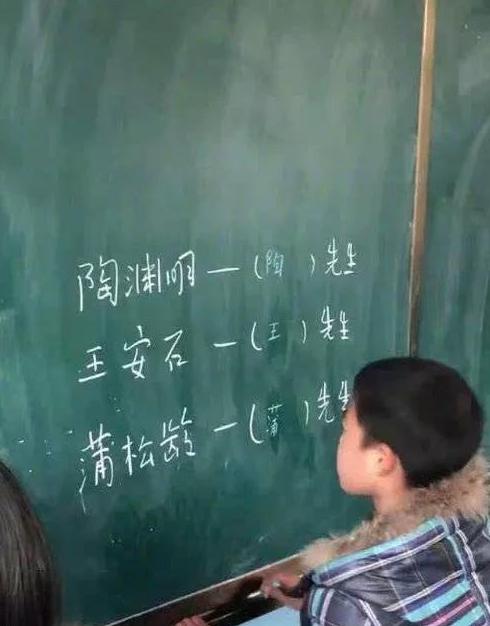 陶渊明—（陶）先生
王安石—（王）先生
蒲松龄—（蒲）先生